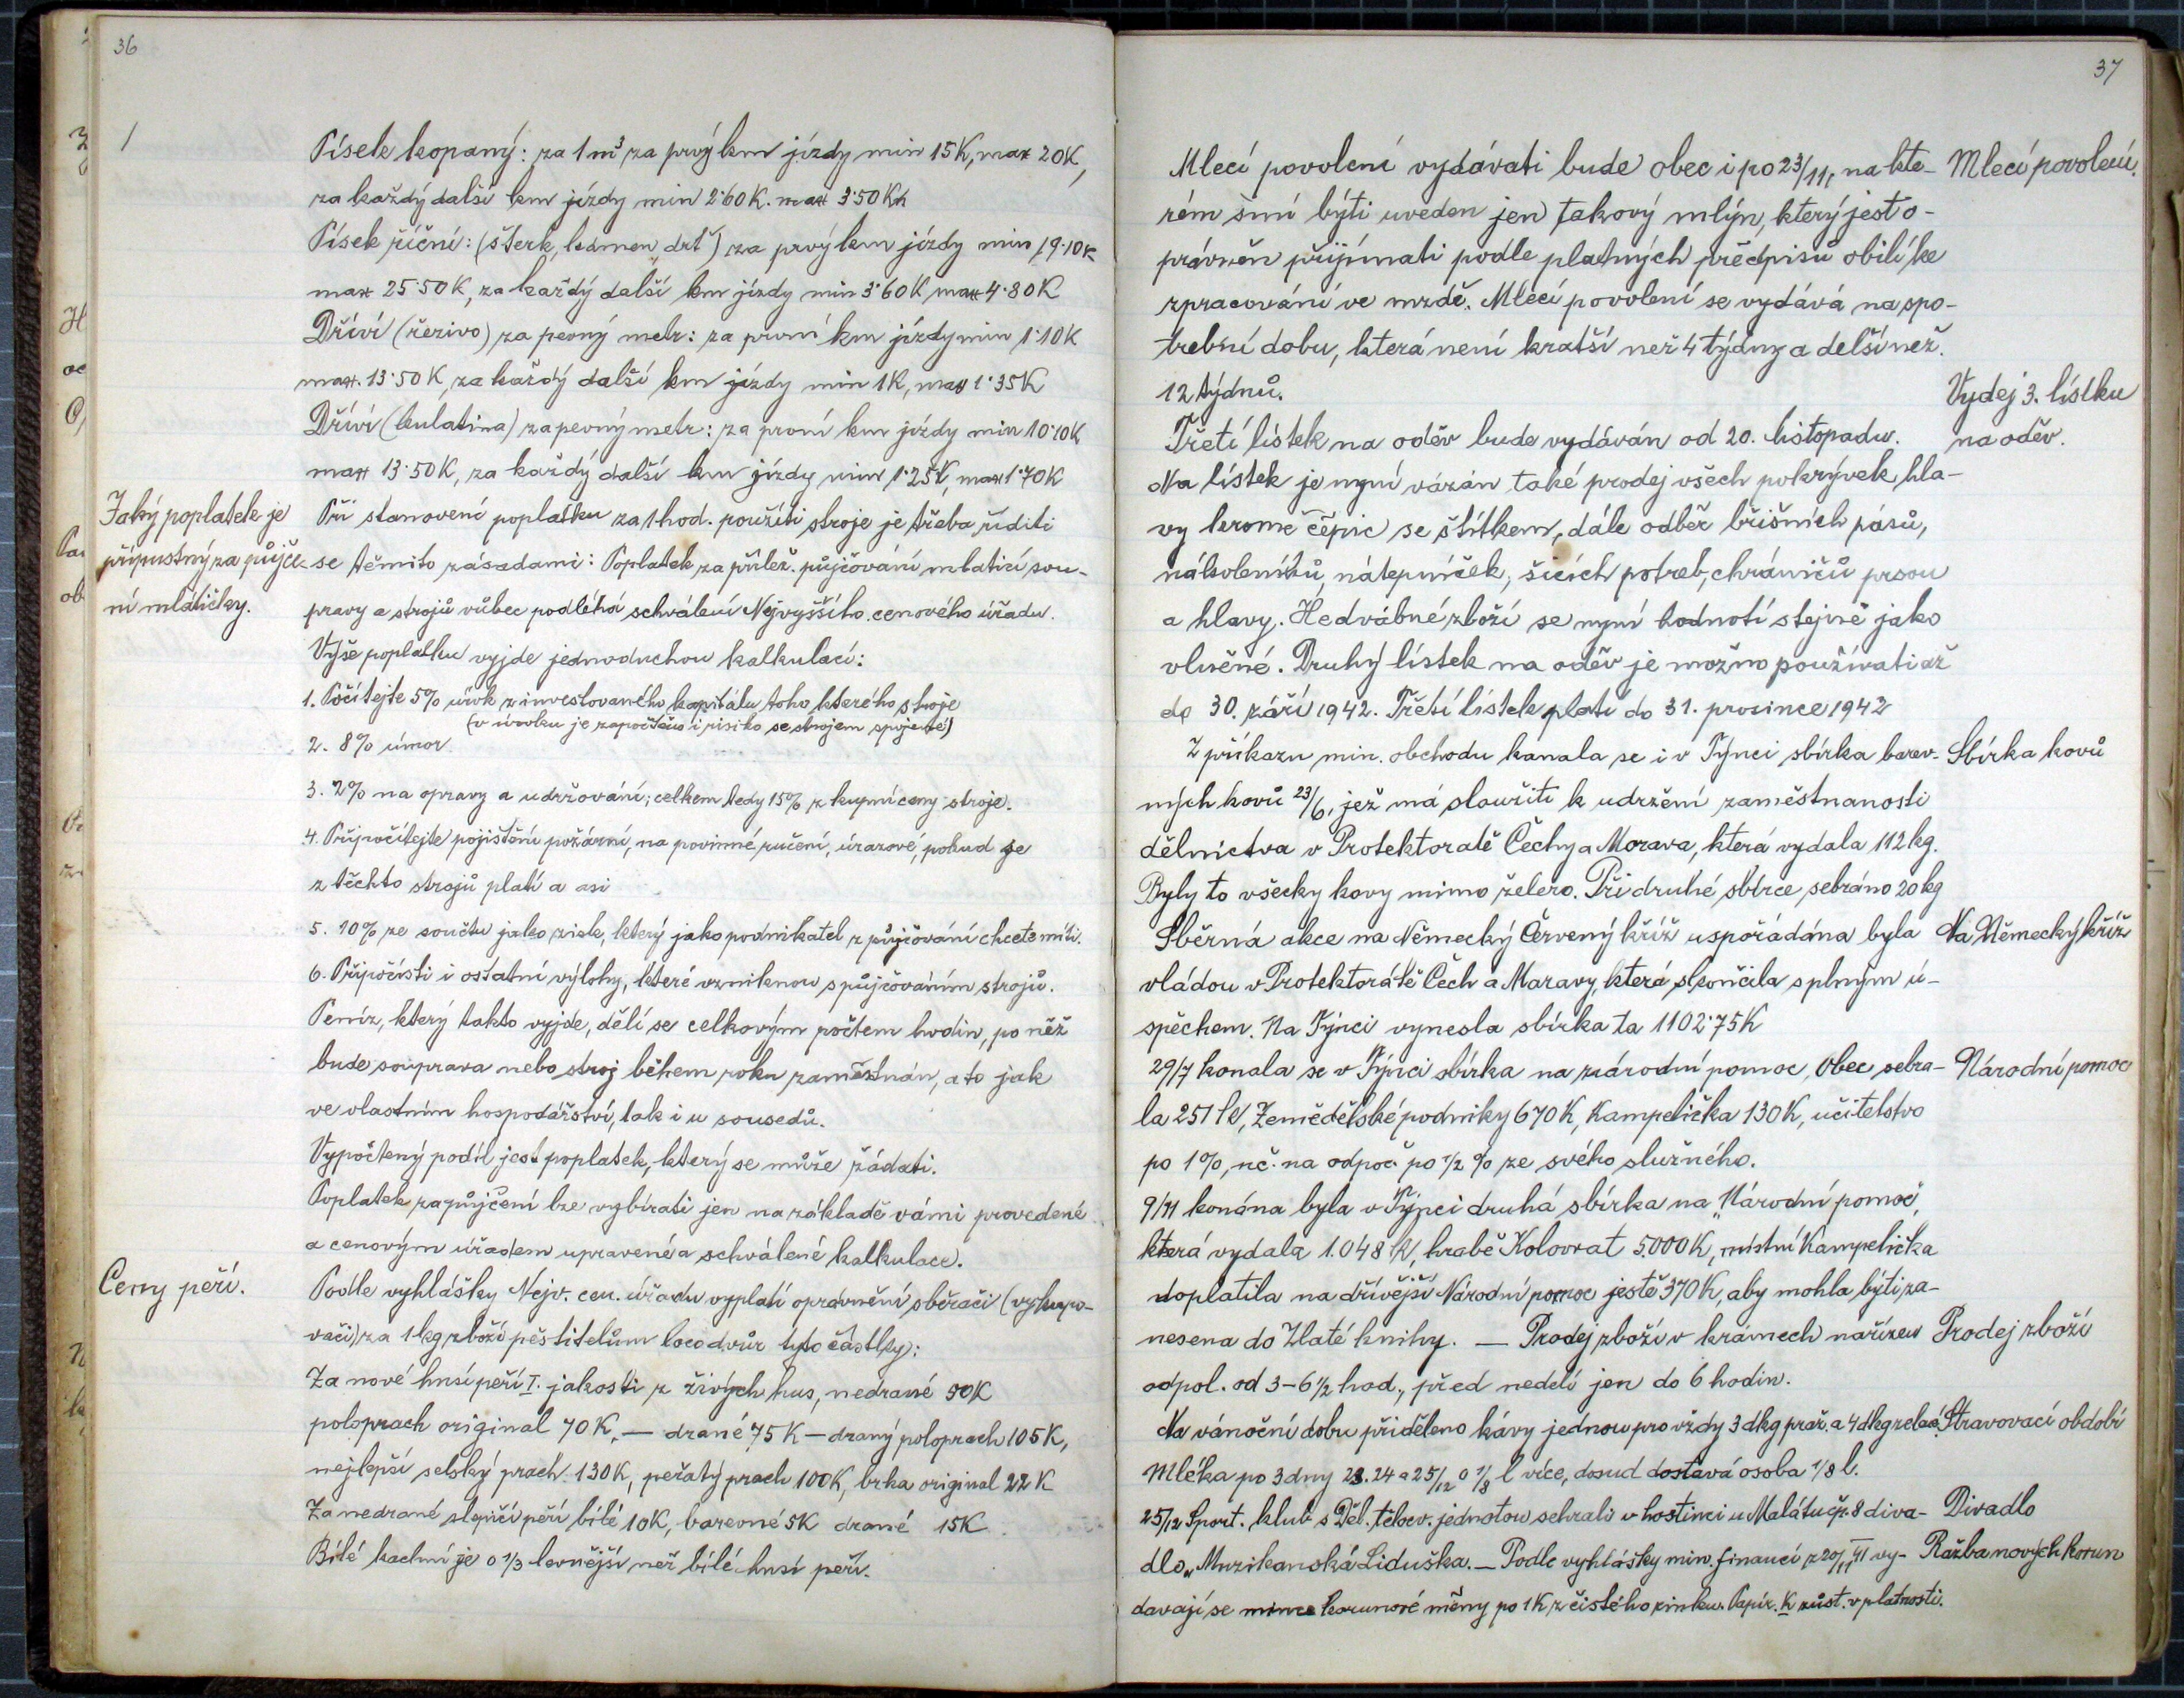 36
Písek kopaný: za 1 m³ za prvý km jízdy min 15K, max 20K,
za každý další km jízdy min 2·60K. max 3·50K
Písek říční: (šterk, kámen, drť) za prvý km jízdy min 19·10K
max 25·50K, za každý další km jízdy min 3·60K max 4·80K
Dříví (řezivo) za pevný metr: za první km jízdy min 1·10K
max. 13·50K, za každý další km jízdy min 1K, max 1·35K
Dříví (kulatina) za pevný metr: za první km jízdy min 10·10K
max 13·50K, za každý další km jízdy min 1·25K, max 1·70K
Jaký poplatek je
přípustný za půjče-
ní mlátičky.
Při stanovení poplatku za 1 hod. použití stroje je třeba říditi
se těmito zásadami: Poplatek za přílež. půjčování mlatící sou-
pravy a strojů vůbec podléhá schválení Nejvyššího cenového úřadu.
Výše poplatku vyjde jednoduchou kalkulací:
1. Počítejte 5% úrok z investovaného kapitálu toho kterého stroje
(v úroku je započteno i risiko se strojem spojené)
2. 8% úmor
3. 2% na opravy a udržování; celkem tedy 15% z kupní ceny stroje.
4. Připočítejte pojištění požární, na povinné ručení, úrazové, pokud se
z těchto strojů platí a asi
5. 10% ze součtu jako zisk, který jako podnikatel z půjčování chcete míti.
6. Připočísti i ostatní výlohy, které vzniknou s půjčováním strojů.
Peníz, který takto vyjde, dělí se celkovým počtem hodin, po něž
bude souprava nebo stroj během roku zaměstnán, a to jak
ve vlastním hospodářství, tak i u sousedů.
Vypočtený podíl jest poplatek, který se může žádati.
Poplatek za půjčení lze vybírati jen na základě vámi provedené
a cenovým úřadem upravené a schválené kalkulace.
Ceny peří.
Podle vyhlášky Nejv. cen. úřadu vyplatí oprávnění sběrači (vykupo-
vači) za 1 kg zboží pěstitelům loco dvůr tyto částky:
Za nové husí peří I. jakosti z živých hus, nedrané 50K
poloprach original 70K, — drané 75K — draný poloprach 105K,
nejlepší selský prach 130K, peřatý prach 100K, brka original 22K
Za nedrané slepičí peří bílé 10K, barevné 5K drané 15K
Bílé kachní je o 1/3 levnější než bílé husí peří.
37
Mlecí povolení vydávati bude obec i po 23/11, na kte-
Mlecí povolení.
rém smí býti uveden jen takový mlýn, který jest o-
právněn přijímati podle platných předpisů obilí ke
zpracování ve mzdě. Mlecí povolení se vydává na spo-
třební dobu, která není kratší než 4 týdny a delší než
12 týdnů.
Vydej 3. lístku
na oděv.
Třetí lístek na oděv bude vydáván od 20. listopadu.
Na lístek je nyní vázán také prodej všech pokrývek hla-
vy kromě čepic se štítkem, dále odběr břišních pásů,
nákoleníků, nátepníček, šicích potřeb, chráničů prsou
a hlavy. Hedvábné zboží se nyní hodnotí stejně jako
vlněné. Druhý lístek na oděv je možno používati až
do 30. září 1942. Třetí lístek platí do 31. prosince 1942
Z příkazu min. obchodu kanala se i v Týnci sbírka barev-
Sbírka kovů
ných kovů 23/6, jež má sloužiti k udržení zaměstnanosti
dělnictva v Protektoratě Čechy a Morava, která vydala 112 kg.
Byly to všecky kovy mimo železo. Při druhé sbírce sebráno 20 kg
Sběrná akce na Německý Červený kříž uspořádána byla
Na Německý kříž
vládou v Protektorátě Čech a Moravy, která skončila s plným ú-
spěchem. Na Týnci vynesla sbírka ta 1102·75K
29/7 konala se v Týnci sbírka na národní pomoc, Obec sebra-
Národní pomoc
la 251 K, Zemědělské podniky 670K, Kampelička 130K, učitelstvo
po 1%, uč. na odpoč. po 1/2 % ze svého služného.
9/11 konána byla v Týnci druhá sbírka na „Národní pomoc",
která vydala 1.048 K, hrabě Kolovrat 5.000K, místní Kampelička
doplatila na dřívější Národní pomoc ještě 370K, aby mohla býti za-
nesena do Zlaté knihy. — Prodej zboží v krámech nařízen
Prodej zboží
odpol. od 3-6 1/2 hod., před nedelí jen do 6 hodin.
Na vánoční dobu přiděleno kávy jednou pro vždy 3 dkg praž. a 4 dkg zelené.
Stravovací období
Mléka po 3 dny 23. 24 a 25/12 o 1/8 l více, dosud dostává osoba 1/8 l.
25/12 Sport. klub s Děl. tělocv. jednotou sehrali v hostinci u Malátů čp. 8 diva-
Divadlo
dlo „Muzikanská Liduška. — Podle vyhlášky min. financí z 20/11 41 vy-
Ražba nových korun
davají se mince korunové měny po 1K z čistého zinku. Papír. K zůst. v platnosti.